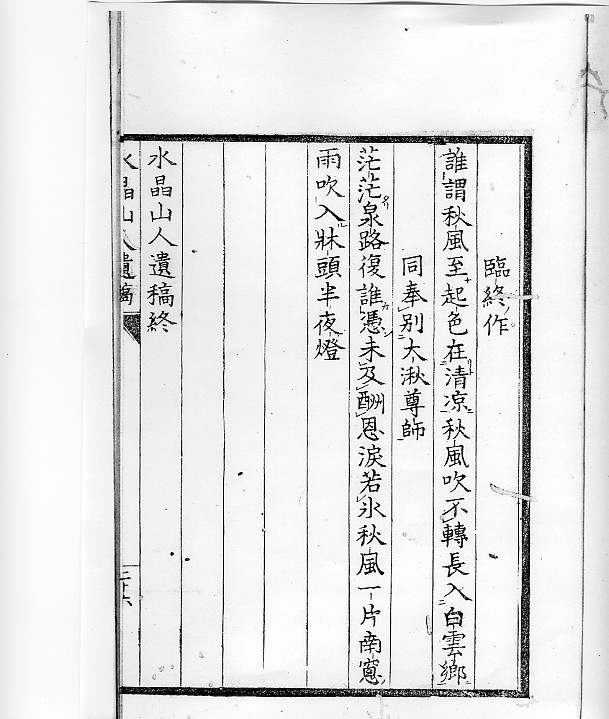 臨終作
誰謂秋風至起色在清凉秋風吹不轉長入白雲鄉
同奉別大湫尊師
茫茫泉路復誰憑未及酬恩淚若氷秋風一片南窓
雨吹入牀頭半夜燈
水晶山人遺稿終
水晶山人遺稿
二十六